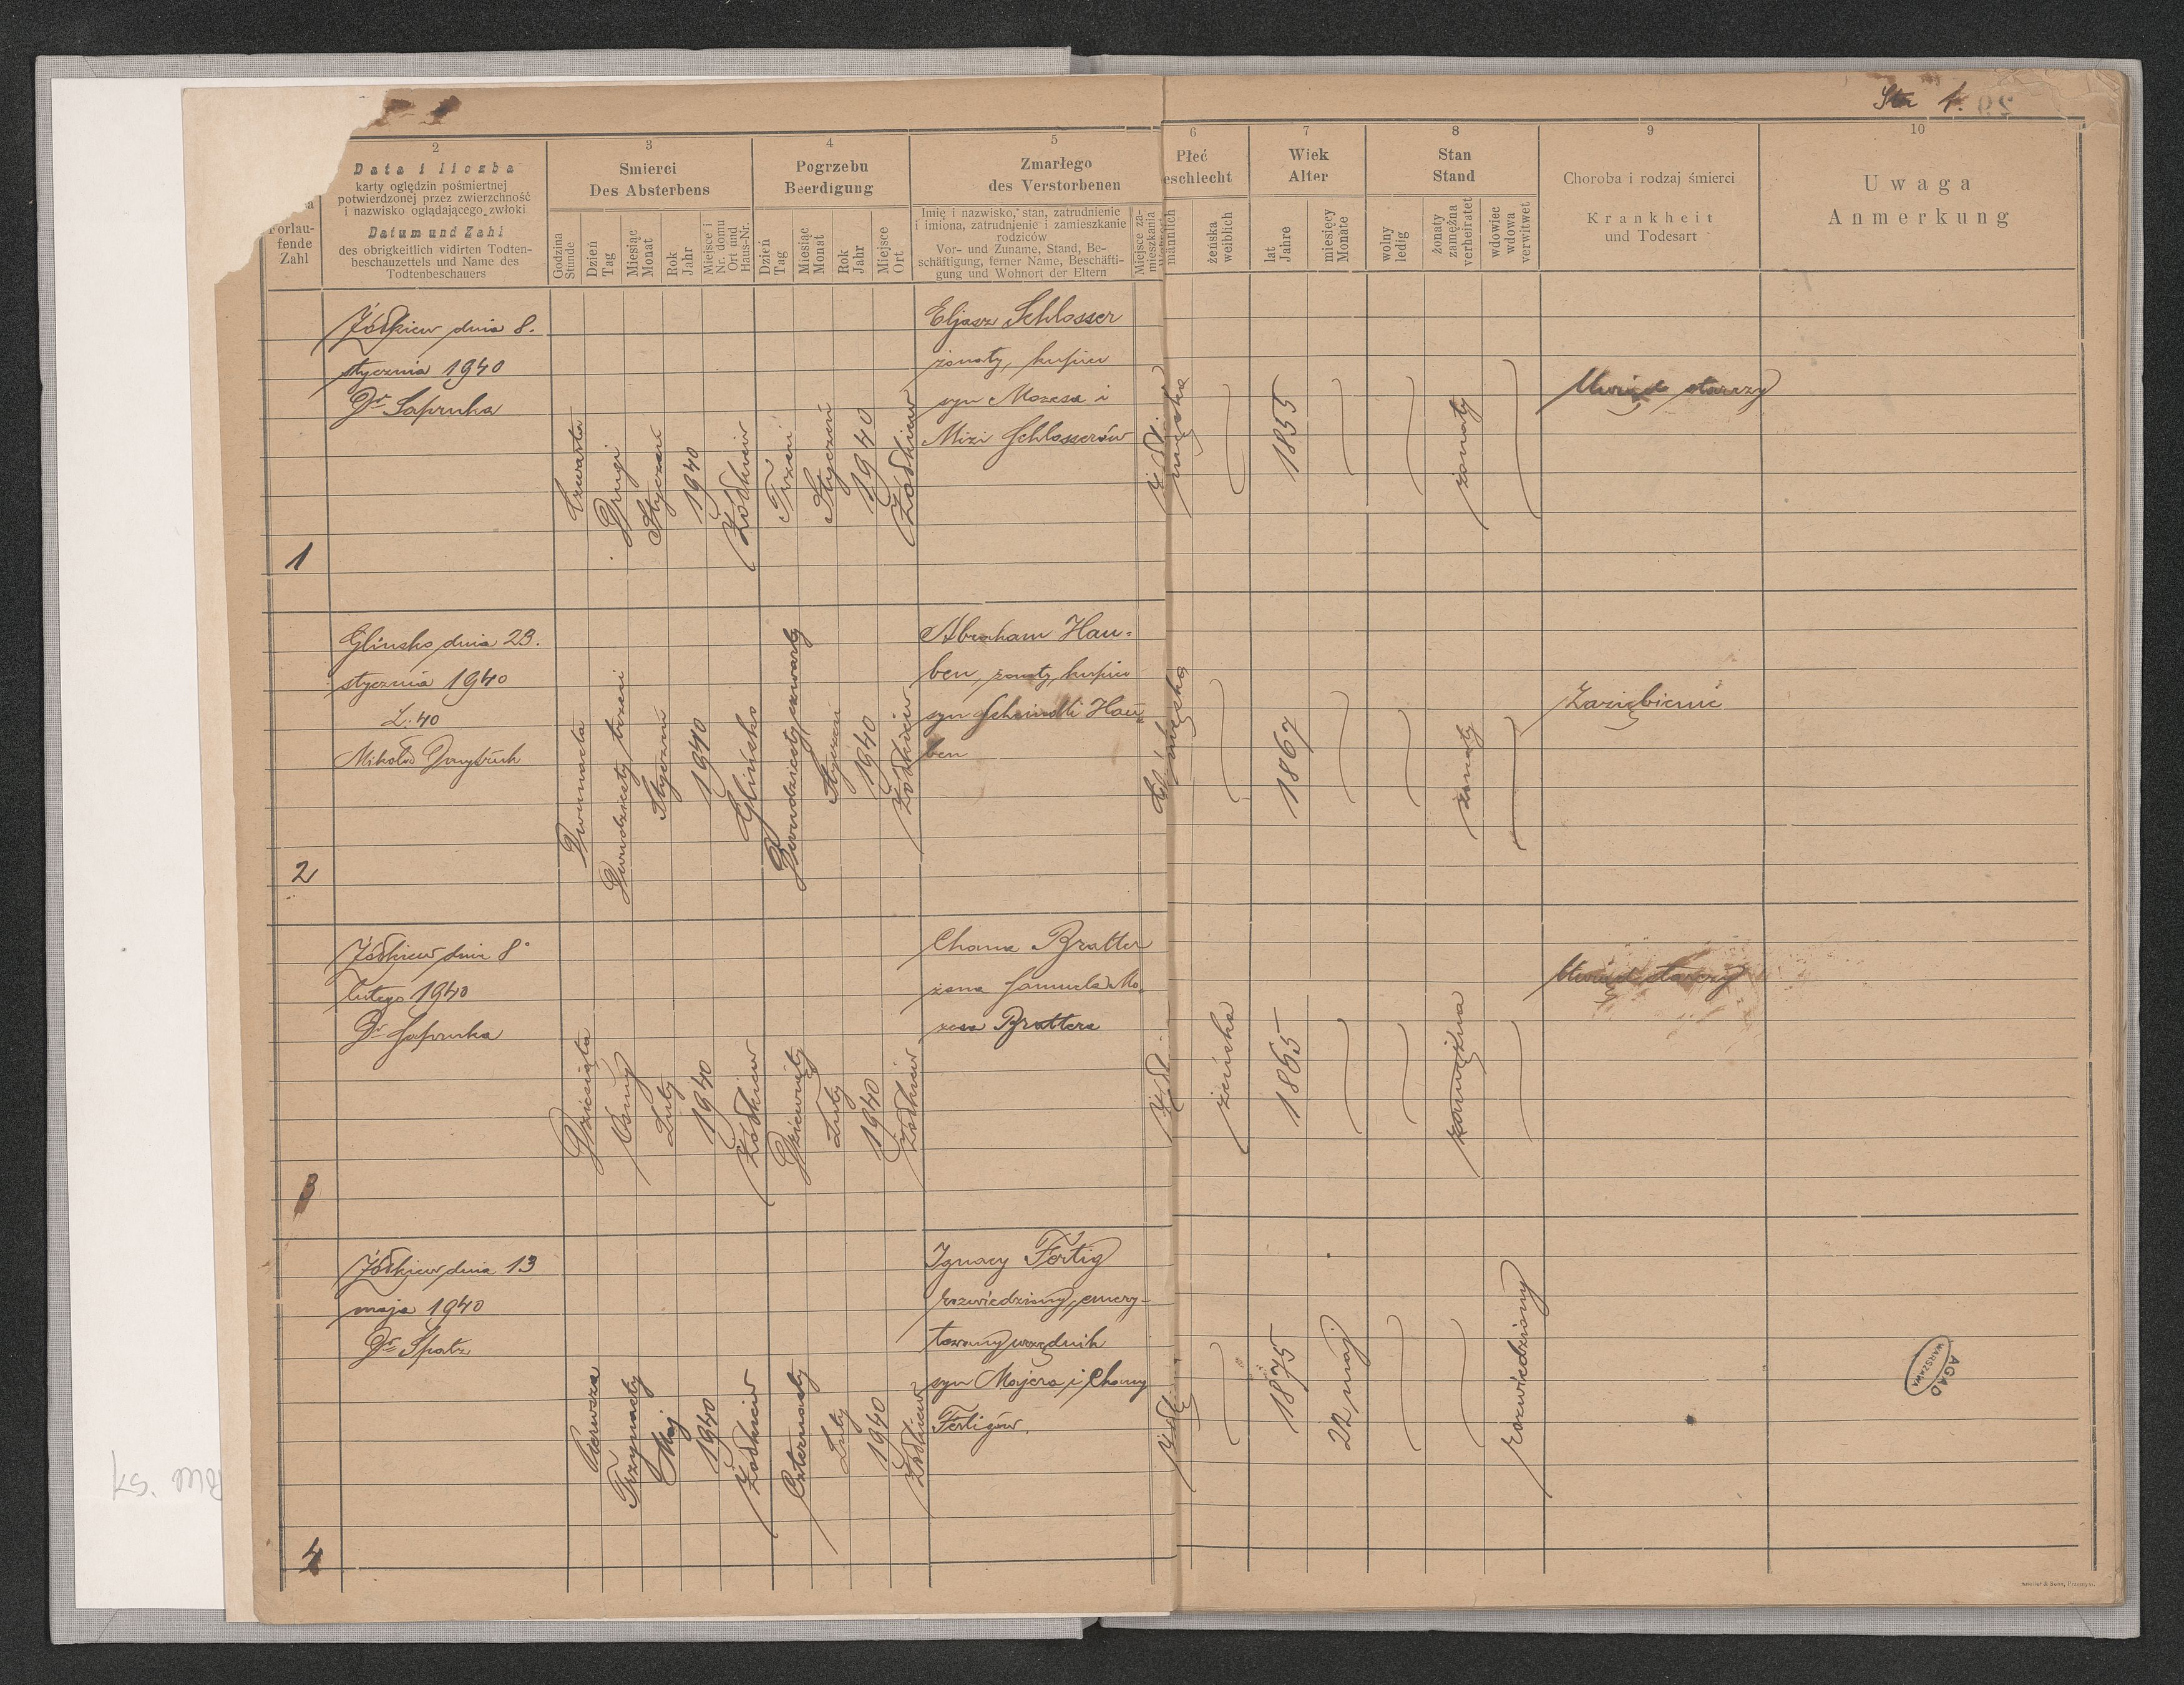 Str 1.
29
2
Data i liczba
karty oględzin pośmiertnej
potwierdzonej przez zwierzchność
i nazwisko oglądającego zwłoki
Datum und Zahl
des obrigkeitlich vidirten Todten-
beschauzettels und Name des
Todtenbeschauers
Forlau-
fende
Zahl
3
Smierci
Des Absterbens
Godzina
Stunde
Dzień
Tag
Miesiąc
Monat
Rok
Jahr
Miejsce i
Nr. domu
Ort und
Haus-Nr.
4
Pogrzebu
Beerdigung
Dzień
Tag
Miesiąc
Monat
Rok
Jahr
Miejsce
Ort
5
Zmarłego
des Verstorbenen
Imię i nazwisko, stan, zatrudnienie
i imiona, zatrudnienie i zamieszkanie
rodziców
Vor- und Zuname, Stand, Be-
schäftigung, ferner Name, Beschäfti-
gung und Wohnort der Eltern
Miejsce za-
mieszkania
6
Płeć
eschlecht
männlich
żeńska
weiblich
7
Wiek
Alter
lat
Jahre
miesięcy
Monate
8
Stan
Stand
wolny
ledig
żonaty
zamężna
verheiratet
wdowiec
wdowa
verwitwet
9
Choroba i rodzaj śmierci
Krankheit
und Todesart
10
Uwaga
Anmerkung
1
Żółkiew dnia 8.
stycznia 1940
Dr Sapruka
Czwarta
Drugi
Styczeń
1940
Żółkiew
Trzeci
Styczeń
1940
Żółkiew
Eljasz Schlosser
żonaty, kupiec
syn Mozesa i
Mizi Schlosserów
męska
1855
żonaty
Uwiąd starczy
2
Glinsko dnia 23.
stycznia 1940
L. 40
Mikołaj
Dwunasta
Dwudziesty trzeci
Styczeń
1940
Glińsko
Dwudziesty czwarty
Styczeń
1940
Żółkiew
Abraham Hau-
ben, żonaty, kupiec
syn Scheindli Hau-
ben
męska
1867
żonaty
Zaziębienie
3
Żółkiew dnia 8
lutego 1940
Dr Sapruka
Dziesiąta
Ósmy
Luty
1940
Żółkiew
Dziewiąty
Luty
1940
Żółkiew
Chana Bratter
żona Samuela Mo-
zesa Brattera
żeńska
1865
zamężna
Uwiąd starczy
4
Żółkiew dnia 13
maja 1940
Dr Spatz
Pierwsza
Trzynasty
Maj
1940
Żółkiew
Czternasty
Luty
1940
Żółkiew
Ignacy Fertig
rozwiedziony, emery-
towany urzędnik
syn Majera i Chany
Fertigów.
1875
22 maj
rozwiedziony
AGAD
WARSZAWA